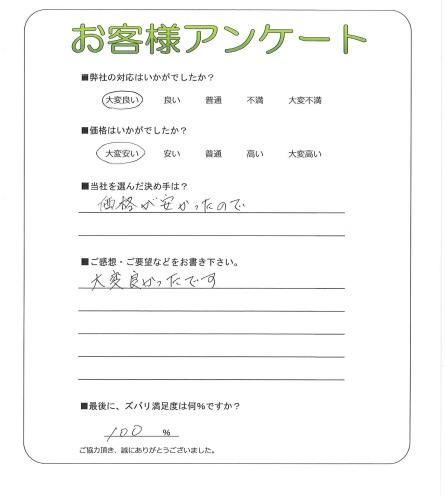 お客様アンケート
■弊社の対応はいかがでしたか？
大変良い 良い 普通 不満 大変不満
■価格はいかがでしたか？
大変安い 安い 普通 高い 大変高い
■当社を選んだ決め手は？
価格が安かったので
■ご感想・ご要望などをお書き下さい。
大変良かったです
■最後に、ズバリ満足度は何％ですか？
100 ％
ご協力頂き、誠にありがとうございました。